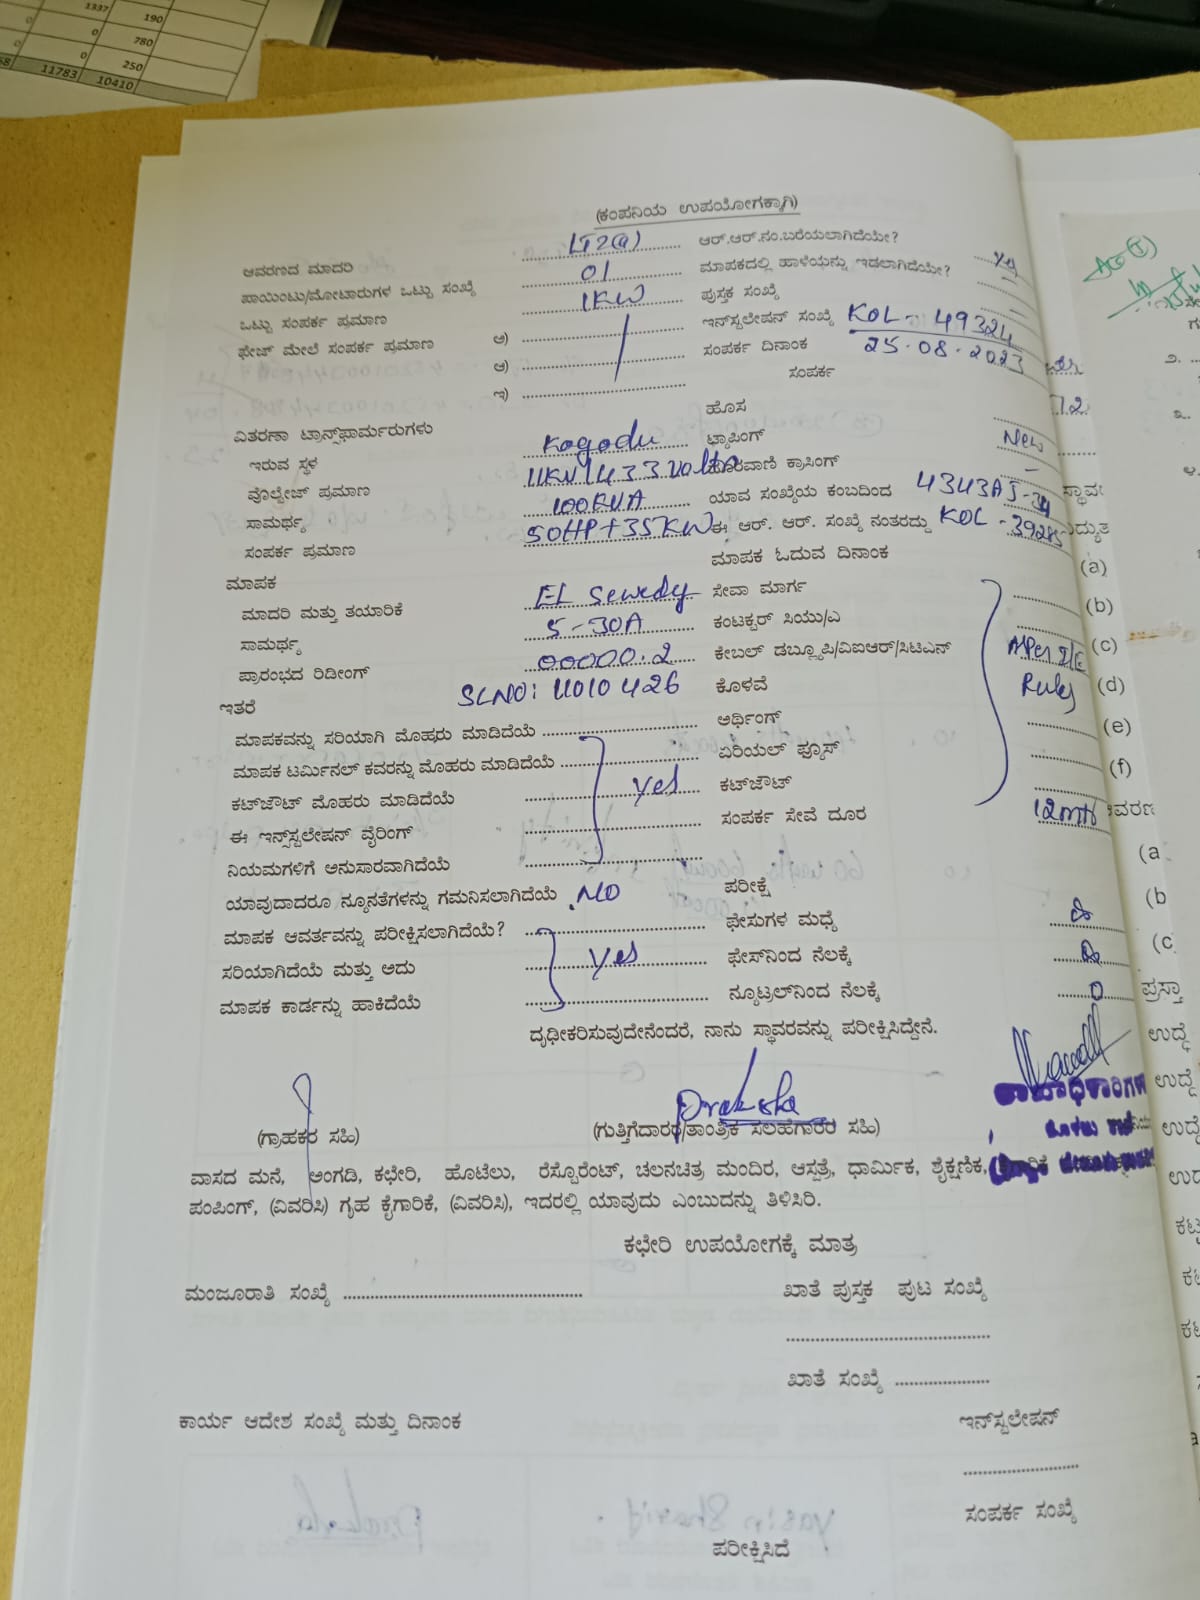 1337 190
0 0 780
0 0 250
11783 10410
(ಕಂಪನಿಯ ಉಪಯೋಗಕ್ಕಾಗಿ)
ಆವರಣದ ಮಾದರಿ LT2(a) ಆರ್.ಆರ್.ನಂ.ಬರೆಯಲಾಗಿದೆಯೇ? Yes
ಪಾಯಿಂಟು/ಮೋಟಾರುಗಳ ಒಟ್ಟು ಸಂಖ್ಯೆ 01 ಮಾಪಕದಲ್ಲಿ ಹಾಳೆಯನ್ನು ಇಡಲಾಗಿದೆಯೇ?
ಒಟ್ಟು ಸಂಪರ್ಕ ಪ್ರಮಾಣ 1KW ಪುಸ್ತಕ ಸಂಖ್ಯೆ
ಫೇಜ್ ಮೇಲೆ ಸಂಪರ್ಕ ಪ್ರಮಾಣ ಅ) ಇನ್‌ಸ್ಟಲೇಷನ್ ಸಂಖ್ಯೆ KOL - 49324
ಆ) ಸಂಪರ್ಕ ದಿನಾಂಕ 25-08-2023
ಇ) ಸಂಪರ್ಕ
ವಿತರಣಾ ಟ್ರಾನ್ಸ್‌ಫಾರ್ಮರುಗಳು ಹೊಸ New
ಇರುವ ಸ್ಥಳ Kogodu ಟ್ಯಾಪಿಂಗ್ –
ವೊಲ್ಟೇಜ್ ಪ್ರಮಾಣ 11KV/433 Volts ದೂರವಾಣಿ ಕ್ರಾಸಿಂಗ್
ಸಾಮರ್ಥ್ಯ 100KVA ಯಾವ ಸಂಖ್ಯೆಯ ಕಂಬದಿಂದ
ಸಂಪರ್ಕ ಪ್ರಮಾಣ 50HP+35KW ಈ ಆರ್. ಆರ್. ಸಂಖ್ಯೆ ನಂತರದ್ದು KOL - 39285
ಮಾಪಕ ಮಾಪಕ ಓದುವ ದಿನಾಂಕ
ಮಾದರಿ ಮತ್ತು ತಯಾರಿಕೆ EL Sewedy ಸೇವಾ ಮಾರ್ಗ
ಸಾಮರ್ಥ್ಯ 5-30A ಕಂಟಕ್ಟರ್ ಸಿಯು/ಎ
ಪ್ರಾರಂಭದ ರಿಡೀಂಗ್ 00000.2 ಕೇಬಲ್ ಡಬ್ಲ್ಯೂಪಿ/ವಿಐಆರ್/ಸಿಟಿಎನ್ AsPer I/E
ಇತರೆ SLNO: 11010426 ಕೊಳವೆ Rules
ಮಾಪಕವನ್ನು ಸರಿಯಾಗಿ ಮೊಹರು ಮಾಡಿದೆಯೆ ಅರ್ಥಿಂಗ್
ಮಾಪಕ ಟರ್ಮಿನಲ್ ಕವರನ್ನು ಮೊಹರು ಮಾಡಿದೆಯೆ ಏರಿಯಲ್ ಫ್ಯೂಸ್
ಕಟ್‌ಔಟ್ ಮೊಹರು ಮಾಡಿದೆಯೆ Yes ಕಟ್‌ಔಟ್
ಈ ಇನ್‌ಸ್ಟಲೇಷನ್ ವೈರಿಂಗ್ ಸಂಪರ್ಕ ಸೇವೆ ದೂರ 12mts
ನಿಯಮಗಳಿಗೆ ಅನುಸಾರವಾಗಿದೆಯೆ
ಯಾವುದಾದರೂ ನ್ಯೂನತೆಗಳನ್ನು ಗಮನಿಸಲಾಗಿದೆಯೆ NO ಪರೀಕ್ಷೆ
ಮಾಪಕ ಆವರ್ತವನ್ನು ಪರೀಕ್ಷಿಸಲಾಗಿದೆಯೆ? ಫೇಸುಗಳ ಮಧ್ಯೆ
ಸರಿಯಾಗಿದೆಯೆ ಮತ್ತು ಅದು Yes ಫೇಸ್‌ನಿಂದ ನೆಲಕ್ಕೆ
ಮಾಪಕ ಕಾರ್ಡನ್ನು ಹಾಕಿದೆಯೆ ನ್ಯೂಟ್ರಲ್‌ನಿಂದ ನೆಲಕ್ಕೆ 0
ದೃಢೀಕರಿಸುವುದೇನೆಂದರೆ, ನಾನು ಸ್ಥಾವರವನ್ನು ಪರೀಕ್ಷಿಸಿದ್ದೇನೆ.
Praksha
(ಗ್ರಾಹಕರ ಸಹಿ) (ಗುತ್ತಿಗೆದಾರರ/ತಾಂತ್ರಿಕ ಸಲಹೆಗಾರರ ಸಹಿ)
ವಾಸದ ಮನೆ, ಅಂಗಡಿ, ಕಛೇರಿ, ಹೊಟೆಲು, ರೆಸ್ಟೊರೆಂಟ್, ಚಲನಚಿತ್ರ ಮಂದಿರ, ಆಸ್ಪತ್ರೆ, ಧಾರ್ಮಿಕ, ಶೈಕ್ಷಣಿಕ,
ಪಂಪಿಂಗ್, (ವಿವರಿಸಿ) ಗೃಹ ಕೈಗಾರಿಕೆ, (ವಿವರಿಸಿ), ಇದರಲ್ಲಿ ಯಾವುದು ಎಂಬುದನ್ನು ತಿಳಿಸಿರಿ.
ಕಛೇರಿ ಉಪಯೋಗಕ್ಕೆ ಮಾತ್ರ
ಮಂಜೂರಾತಿ ಸಂಖ್ಯೆ ಖಾತೆ ಪುಸ್ತಕ ಪುಟ ಸಂಖ್ಯೆ
ಖಾತೆ ಸಂಖ್ಯೆ
ಕಾರ್ಯ ಆದೇಶ ಸಂಖ್ಯೆ ಮತ್ತು ದಿನಾಂಕ ಇನ್‌ಸ್ಟಲೇಷನ್
ಸಂಪರ್ಕ ಸಂಖ್ಯೆ
ಪರೀಕ್ಷಿಸಿದೆ
೨.
೩.
೪.
(a)
(b)
(c)
(d)
(e)
(f)
(a
(b
(c